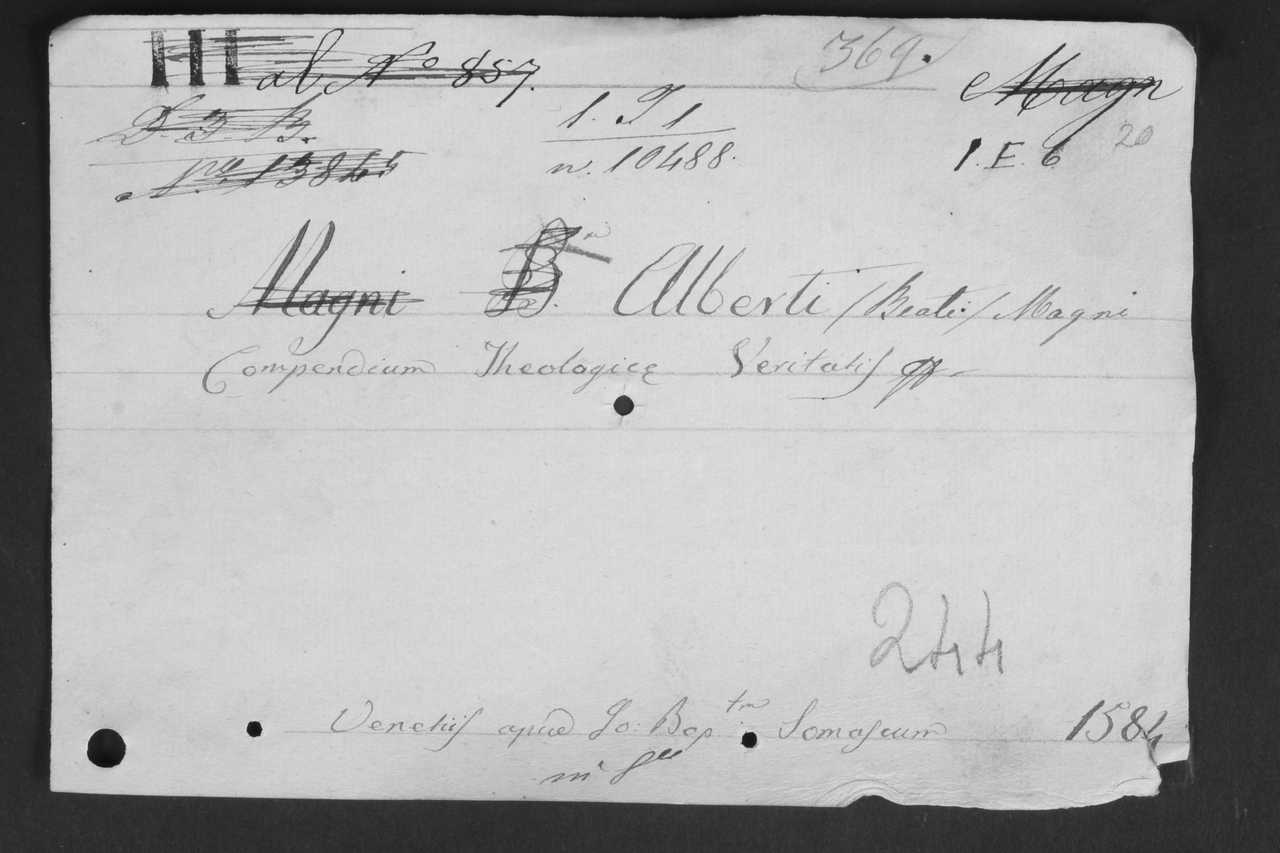 III ab No 857. 369. Magn
D. 3. B. 1. J 1 1. E. 6 20
n. 10488.
Magni B. Alberti /Beati:/ Magni
Compendium Theologicę Veritatis
244
Venetiis apud Jo: Bap.tm Somascum 1584
in 8